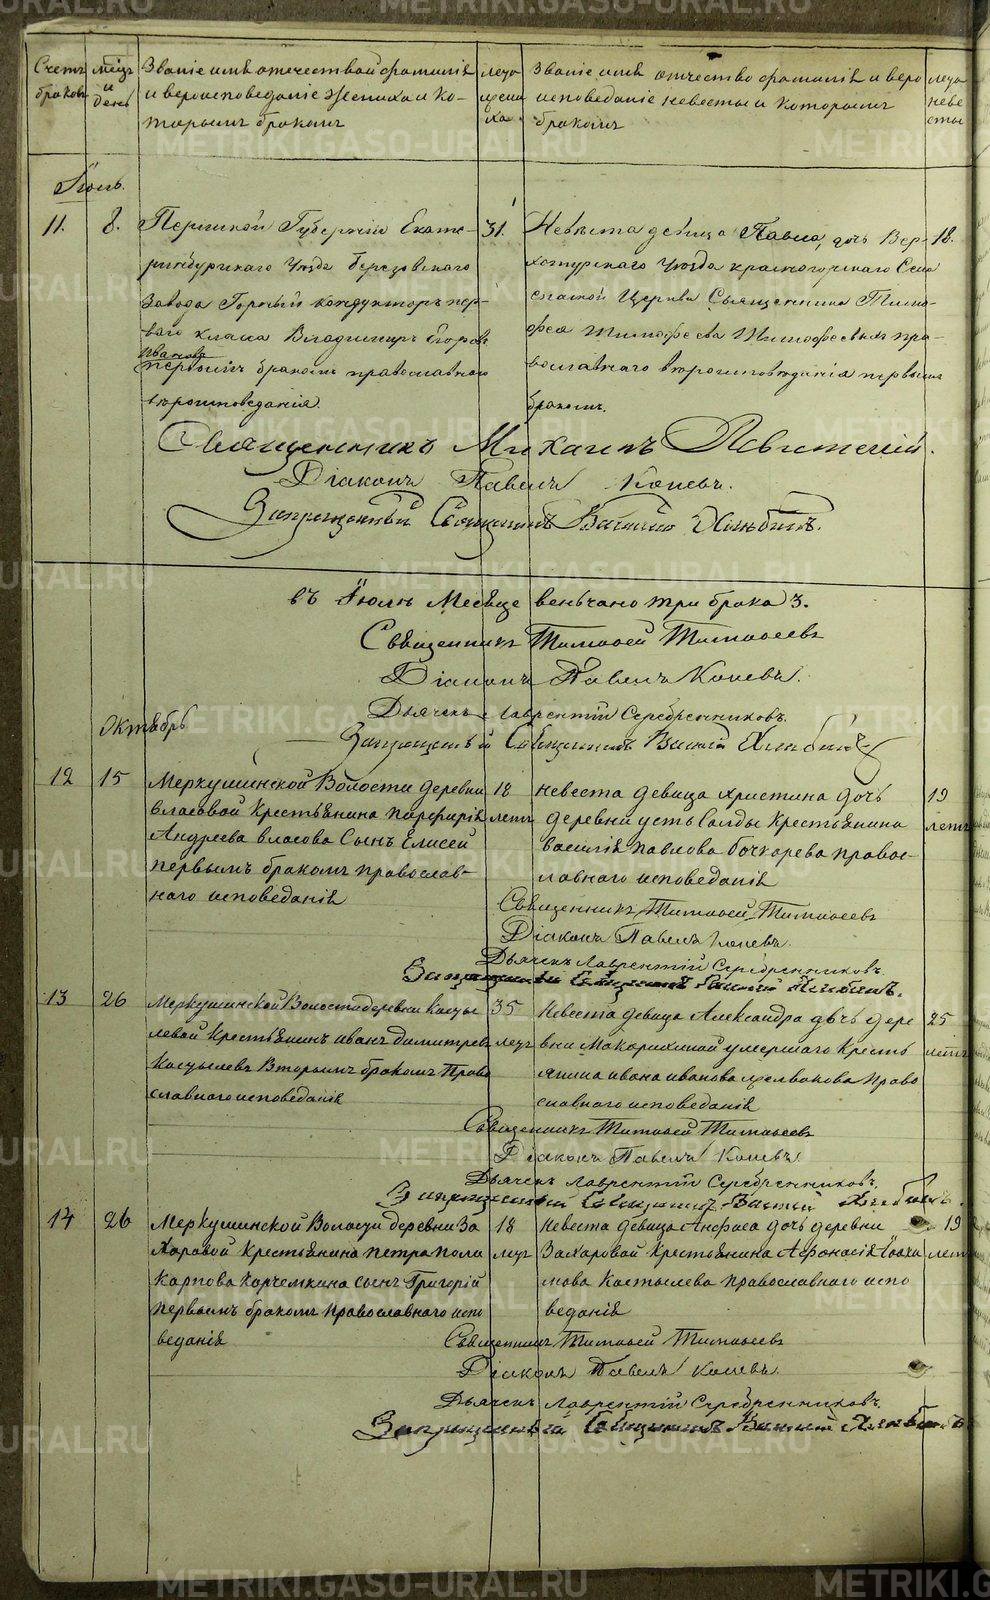 Счетъ браковъ
мѣсяцъ и день
Званіе имя отечество и фамилія
и вероисповеданіе жениха и ко-
торымъ бракомъ
лета жени
ха
Званіе имя отчество фамилія и веро
исповеданіе невесты и которымъ
бракомъ
лета
неве
сты
Іюль.
11.
8.
Пермской Губерніи Екате-
ринбургскаго Уезда березовскаго
завода Горный кондукторъ пер-
ваго класа Владимиръ Егоровъ
Ивановъ
первымъ бракомъ православнаго
вероисповеданія.
31.
Невѣста девица Павла, дочь Вер-
хотурскаго Уезда красногорскаго Села
Церкви Священника Тимо-
фея Тимофеева Тимофеевыхъ пра-
вославнаго вероисповеданія первымъ
бракомъ.
18.
Священникъ Михаилъ Левитскій.
Діаконъ Павелъ Коневъ.
Запрещенный Священникъ Василій Хлыбинъ.
въ Іюлѣ Месяце веньчано три брака 3.
Священникъ Тимофей Тимофеевъ
Діаконъ Павелъ Коневъ.
Дьячекъ Лаврентій Серебренниковъ.
Запрещенный Священникъ Василій Хлыбинъ
Октябрь
12
15
Меркушинской Волости деревни
власовой Крестьянина Парфирія
Андреева власова Сынъ Елисей
первымъ бракомъ православ-
наго исповеданія
18
летъ
невеста девица христина дочь
деревни усть Салды Крестьянина
василія павлова бочкарева правос-
лавнаго исповеданія
19
летъ
Священникъ Тимофей Тимофеевъ
Діаконъ Павелъ Коневъ.
Дьячекъ Лаврентій Серебренниковъ.
Запрещенный Священникъ Василій Хлыбинъ.
13
26
Меркушинской Волости деревни Косты
левой Крестьянинъ иванъ димитревъ
Костылевъ Вторымъ бракомъ Право
славнаго исповеданія
35
летъ
Невеста девица Александра дочь дере
вни Макарихиной умершаго Кресть
янина ивана иванова право
славнаго исповеданія
25
летъ
Священникъ Тимофей Тимофеевъ
Діаконъ Павелъ Коневъ.
Дьячекъ Лаврентій Серебренниковъ.
Запрещенный Священникъ Василій Хлыбинъ.
14
26
Меркушинской Волости деревни За
харовой Крестьянина петра поли
карпова Корчемкина сынъ Григорій
первымъ бракомъ православнаго испо
веданія
18
летъ
невеста девица Анфиса дочь деревни
Захаровой Крестьянина Афонасія Iоаки
мова Костылева православнаго испо
веданія
19
летъ
Священникъ Тимофей Тимофеевъ
Діаконъ Павелъ Коневъ.
Дьячекъ Лаврентій Серебренниковъ.
Запрещенный Священникъ Василій Хлыбинъ
METRIKI.GASO-URAL.RU